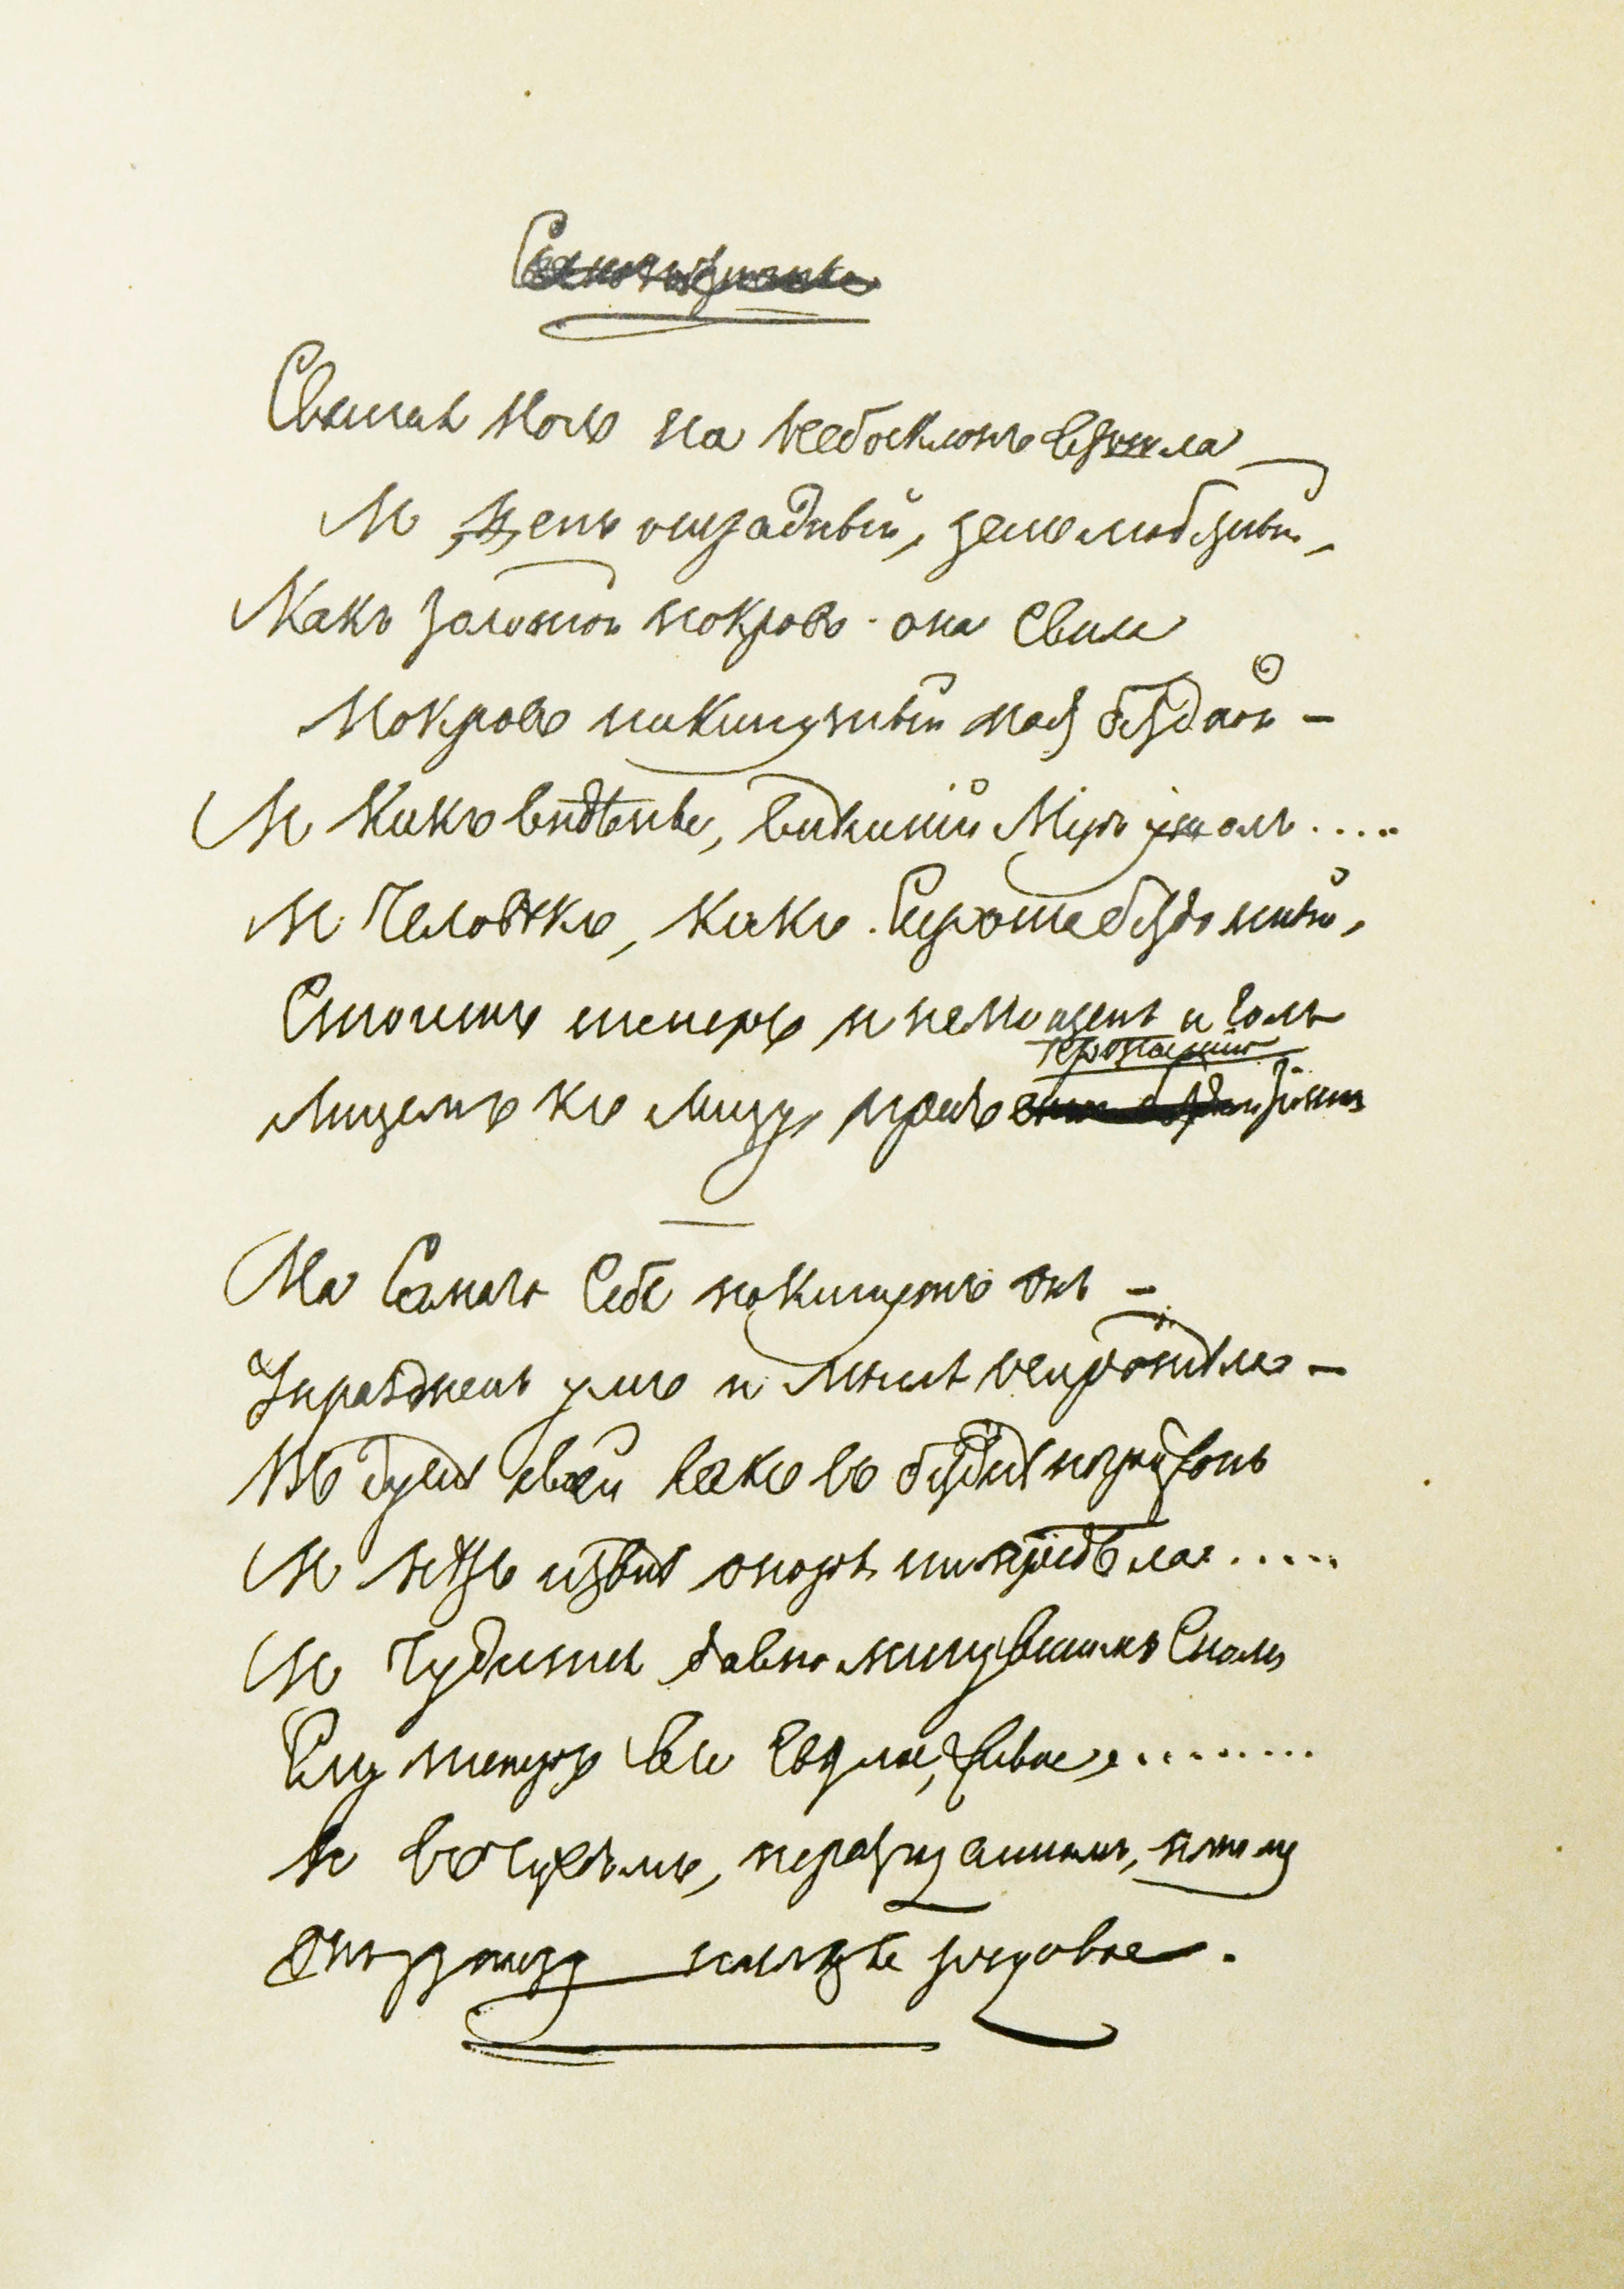 Святая Ночь на небосклонъ взошла
И день отрадный, день любезный,
Какъ золотой покровъ она свила
Покровъ накинутый надъ бездной –
И Какъ видѣнье, внѣшній Міръ ушолъ.....
И Человѣкъ, какъ Сирота бездомный,
Стоитъ теперь и немощенъ и голъ
пропастію
Лицемъ къ лицу, предъ темной
На Самаго Себя покинутъ онъ –
Упраздненъ умъ и Мысль осиротѣла –
Въ душѣ своей какъ въ безднѣ погружонъ
И нѣтъ извнѣ опоры ни предѣла.....
И Чудится давно минувшимъ Сномъ
Ему теперь все свѣтлое, живое.........
И въ чуждомъ, неразгаданномъ, ночномъ
Онъ узнаетъ наслѣдье родовое.